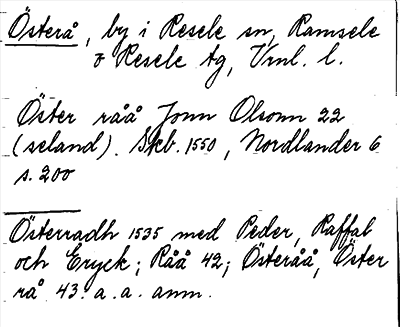 Österå, by i Resele sn, Ramsele
o Resele tg, Vrnl. l.
Öster råå Jonn Olsonn 22
(seland). Skb. 1550, Nordlander 6
s. 200
Österradh 1535 med Peder, Raffal
och Eryck; Råå 42; Österåå, Öster
rå 43. a. a. anm.